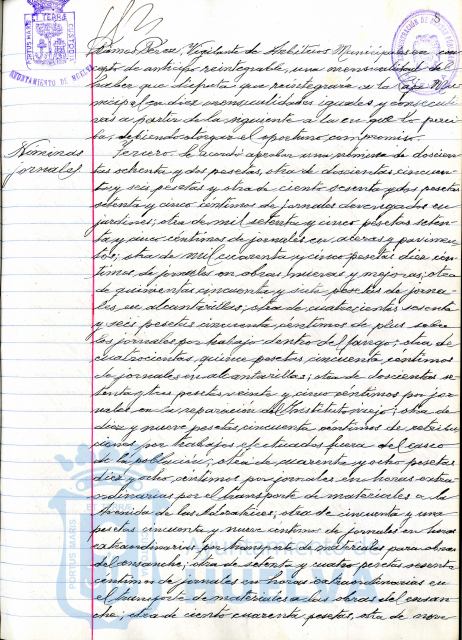 PORTUS MARIS ET TERRAE CUSTODIA
AYUNTAMIENTO DE HUELVA
5
Ramos Pérez, Vigilante de Arbitrios Municipales en con-
cepto de anticipo reintegrable, una mensualidad del
haber que disfruta que reintegrará a la Caja Mu-
nicipal en diez mensualidades iguales y consecuti-
vas a partir de la siguiente a la en que lo perci-
ba, debiendo otorgar el oportuno compromiso.
Nóminas jornales
Tercero: Se acordó aprobar una nómina de doscien-
tas ochenta y dos pesetas, otra de doscientas cincuen-
ta y seis pesetas y otra de ciento sesenta y dos pesetas
setenta y cinco céntimos de jornales devengados en
jardines; otra de mil setenta y cinco pesetas seten-
ta y cinco céntimos de jornales en aceras y pavimen-
tos; otra de mil cuarenta y cinco pesetas diez cén-
timos, de jornales en obras nuevas y mejoras; otra
de quinientas cincuenta y siete pesetas de jorna-
les en alcantarillas; otra de cuatrocientas sesenta
y seis pesetas cincuenta céntimos de plus sobre
los jornales por trabajo dentro del fango; otra de
cuatrocientas quince pesetas cincuenta céntimos
de jornales en alcantarillas; otra de doscientas se-
tenta y tres pesetas veinte y cinco céntimos por jor-
nales en la reparación del Instituto viejo; otra de
diez y nueve pesetas cincuenta céntimos de retribu-
ciones por trabajos efectuados fuera del casco
de la población; otra de cuarenta y ocho pesetas
diez y ocho céntimos por jornales en horas extra-
ordinarias por el transporte de materiales a la
Avenida de los Adoratrices; otra de cincuenta y una
pesetas cincuenta y nueve céntimos de jornales en horas
extraordinarias por transporte de materiales para obras
del ensanche; otra de setenta y cuatro pesetas sesenta
céntimos de jornales en horas extraordinarias en
el transporte de materiales a las obras del ensan-
che; otra de ciento cuarenta pesetas, otra de nove